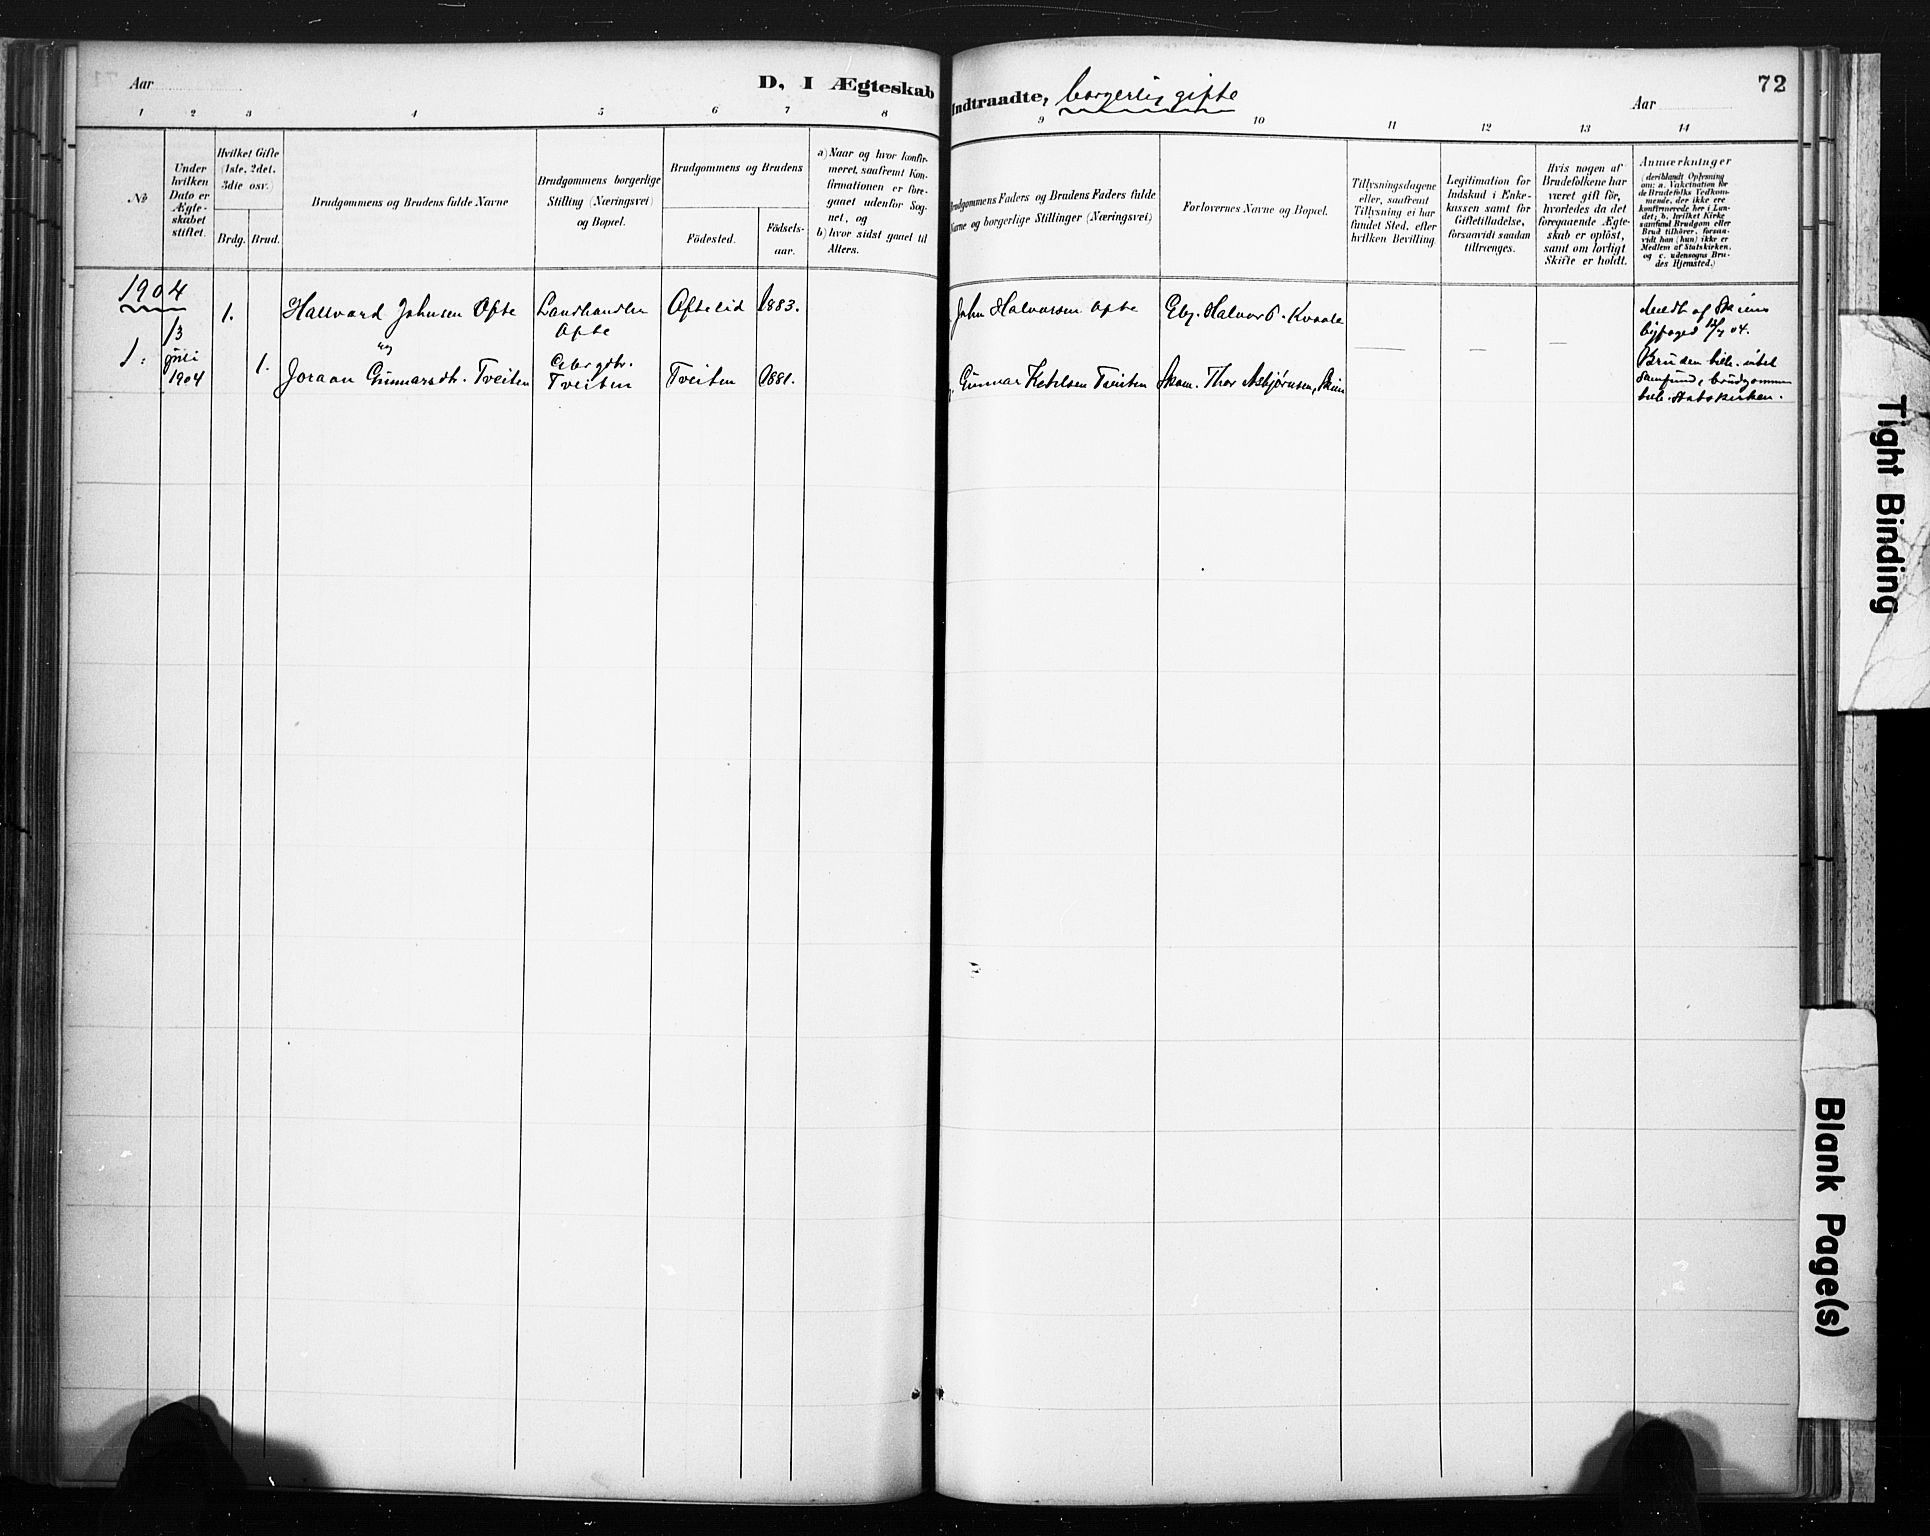 Aar
D, I Ægteskab
Indtraadte, borgerlig gifte
Aar
72
1 2 3 4 5 6 7 8 9 10 11 12 13 14
No
Under
hvilken
Dato er
Ægte-
skabet
stiftet.
Hvilket Gifte
(1ste, 2det,
3die osv.)
Brdg.
Brud.
Brudgommens og Brudens fulde Navne
Brudgommens borgerlige
Stilling (Næringsvei)
og Bopæl.
Brudgommens og Brudens
Födested.
Födsels-
aar.
a) Naar og hvor konfir-
meret, saafremt Kon-
firmationen er fore-
gaaet udenfor Sog-
net, og
b) hvor sidst gaaet til
Alters.
Brudgommens Faders og Brudens Faders fulde
Navne og borgerlige Stillinger (Næringsvei)
Forlovernes Navne og Bopæl.
Tillysningsdagene
eller, saafremt
Tillysning ei har
fundet Sted, efter
hvilken Bevilling
Legitimation for
Indskud i Enke-
kassen samt for
Giftetilladelse,
forsaavidt saadan
tiltrænges.
Hvis nogen af
Brudefolkene har
været gift för,
hvorledes da det
foregaaende Ægte-
skab er oplöst,
samt om lovligt
Skifte er holdt.
Anmærkninger
(deriblandt Oplysning
om: a. Vakcination for
de Brudefolks Vedkom-
mende, der ikke ere
konfirmerede her i Lan-
det; b. hvilket Kirke
samfund Brudgom eller
Brud tilhörer, forsaa-
vidt han (hun) ikke er
Medlem af Statskirken,
og c. udensogns Bru-
des Hjemsted.)
1904
1.
13
juli
1904
1.
Hallvard Johnsen Ofte
Landhandler
Ofte
Oftelid
1883.
John Halvorsen Ofte
Gbr. Halvor O. Kvaale
Meldt af Skiens
byfoged 13/7 04.
og
1.
Joraan Gunnarsdtr. Tveiten
Tveiten
Tveiten
1881.
Gunnar Ketilsen Tveiten
Skom. Thor Asbjørnsen, Skien
Bruden tilh. intet
samfund, brudgommen
tilh. Statskirken.
Tight Binding
Blank Page(s)